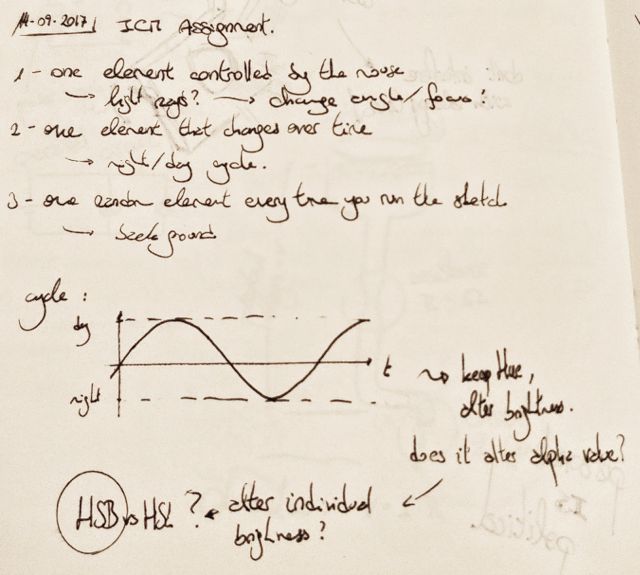 -09-2017 ICM Assignment.
1 - one element controlled by the mouse
→ light rays? → change angle/focus?
2 - one element that changes over time
→ night/day cycle.
3 - one random element every time you run the sketch
→ background
cycle :
day
t
night
→ keep Hue,
alter brightness.
does it alter alpha value?
HSB vs HSL ? ← alter individual
brightness?